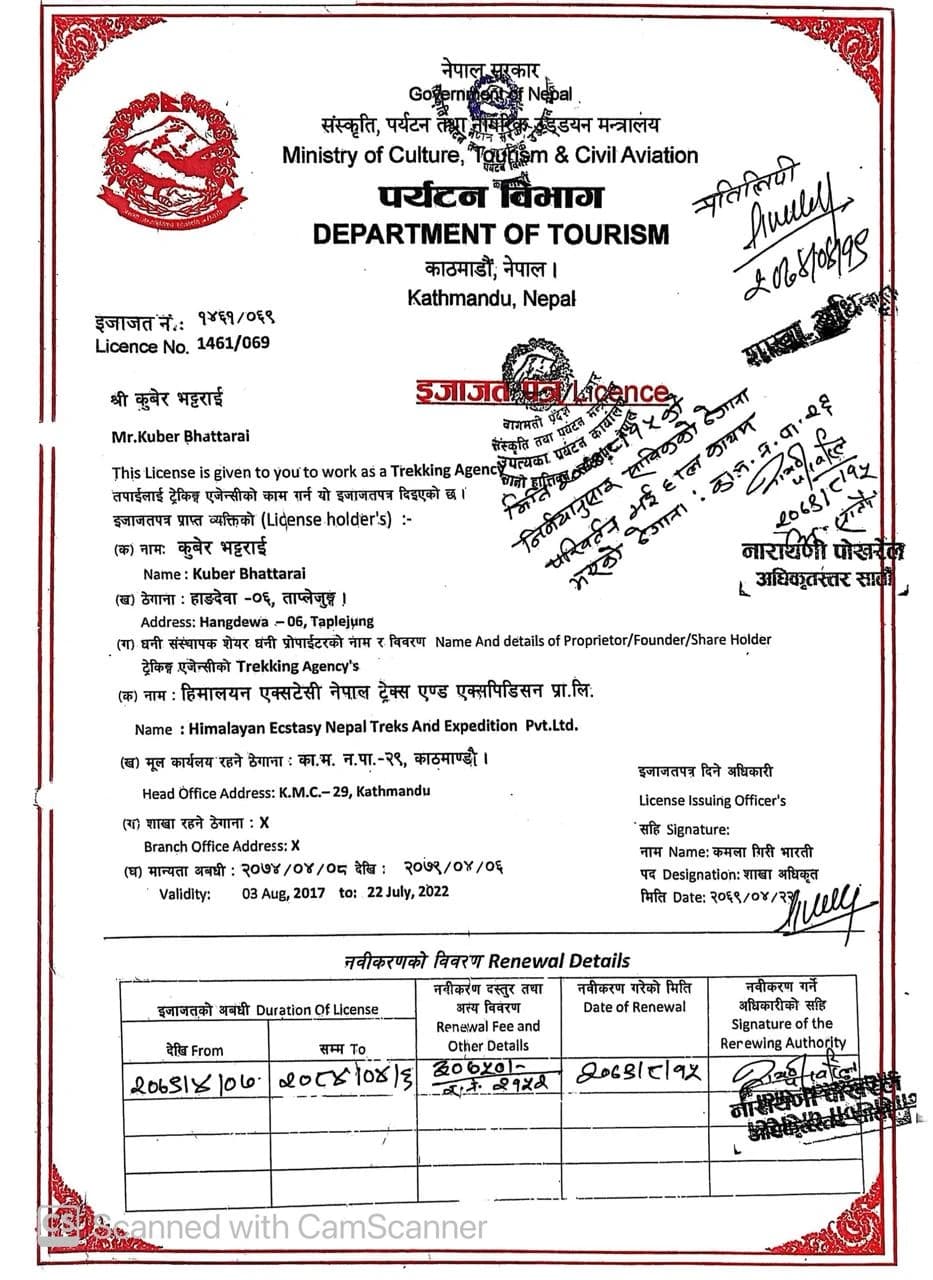 नेपाल सरकार
Government of Nepal
संस्कृति, पर्यटन तथा नागरिक उड्डयन मन्त्रालय
Ministry of Culture, Tourism & Civil Aviation
पर्यटन विभाग
DEPARTMENT OF TOURISM
काठमाडौं, नेपाल ।
Kathmandu, Nepal
प्रतिलिपी
शाखा अधिकृत
इजाजत नं.: १४६१/०६९
Licence No. 1461/069
इजाजत पत्र/Licence
बागमती प्रदेश सरकार
संस्कृति तथा पर्यटन मन्त्रालय
उपत्यका पर्यटन कार्यालय
श्री कुबेर भट्टराई
Mr.Kuber Bhattarai
This License is given to you to work as a Trekking Agency
तपाईलाई ट्रेकिङ्ग एजेन्सीको काम गर्न यो इजाजतपत्र दिइएको छ ।
इजाजतपत्र प्राप्त व्यक्तिको (License holder's) :-
निर्णयानुसार साविकको ठेगाना
परिवर्तन भई हाल कायम
भएको ठेगाना : का.म.न.पा. २६
नारायणी पोखरेल
अधिकृतस्तर सातौं
(क) नामः कुबेर भट्टराई
Name : Kuber Bhattarai
(ख) ठेगाना : हाङदेवा -०६, ताप्लेजुङ्ग ।
Address: Hangdewa – 06, Taplejung
(ग) धनी संस्थापक शेयर धनी प्रोपाईटरको नाम र विवरण Name And details of Proprietor/Founder/Share Holder
ट्रेकिङ्ग एजेन्सीको Trekking Agency's
(क) नाम : हिमालयन एक्सटेसी नेपाल ट्रेक्स एण्ड एक्सपिडिसन प्रा.लि.
Name : Himalayan Ecstasy Nepal Treks And Expedition Pvt.Ltd.
(ख) मूल कार्यलय रहने ठेगाना : का.म. न.पा.-२९, काठमाण्डौ ।
Head Office Address: K.M.C.– 29, Kathmandu
(ग) शाखा रहने ठेगाना : X
Branch Office Address: X
(घ) मान्यता अबधी : २०७४/०४/०८ देखि : २०७९/०४/०६
Validity: 03 Aug, 2017 to: 22 July, 2022
इजाजतपत्र दिने अधिकारी
License Issuing Officer's
सहि Signature:
नाम Name: कमला गिरी भारती
पद Designation: शाखा अधिकृत
मिति Date: २०६९/०४/२२
नवीकरणको विवरण Renewal Details
इजाजतको अबधी Duration of License
देखि From
सम्म To
नवीकरण दस्तुर तथा
अन्य विवरण
Renewal Fee and
Other Details
नवीकरण गरेको मिति
Date of Renewal
नवीकरण गर्ने
अधिकारीको सहि
Signature of the
Renewing Authority
२०७९/४/०७ २०८४/०४/६ २०७९/८/१५
नारायणी पोखरेल
अधिकृतस्तर सातौं
CS Scanned with CamScanner